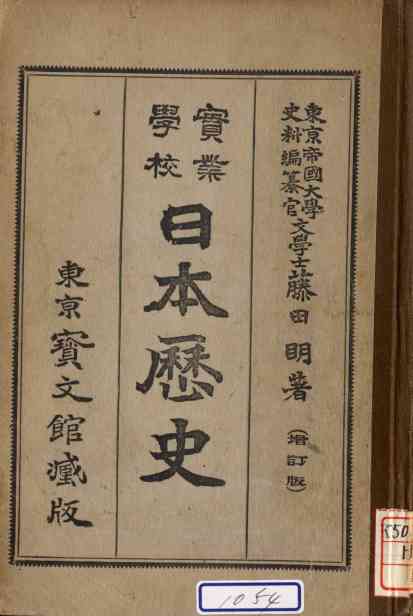 東京帝國大學
史料編纂官
文學士藤田明著
(增訂版)
實業
學校
日本歷史
東京寶文館藏版
1054
K50